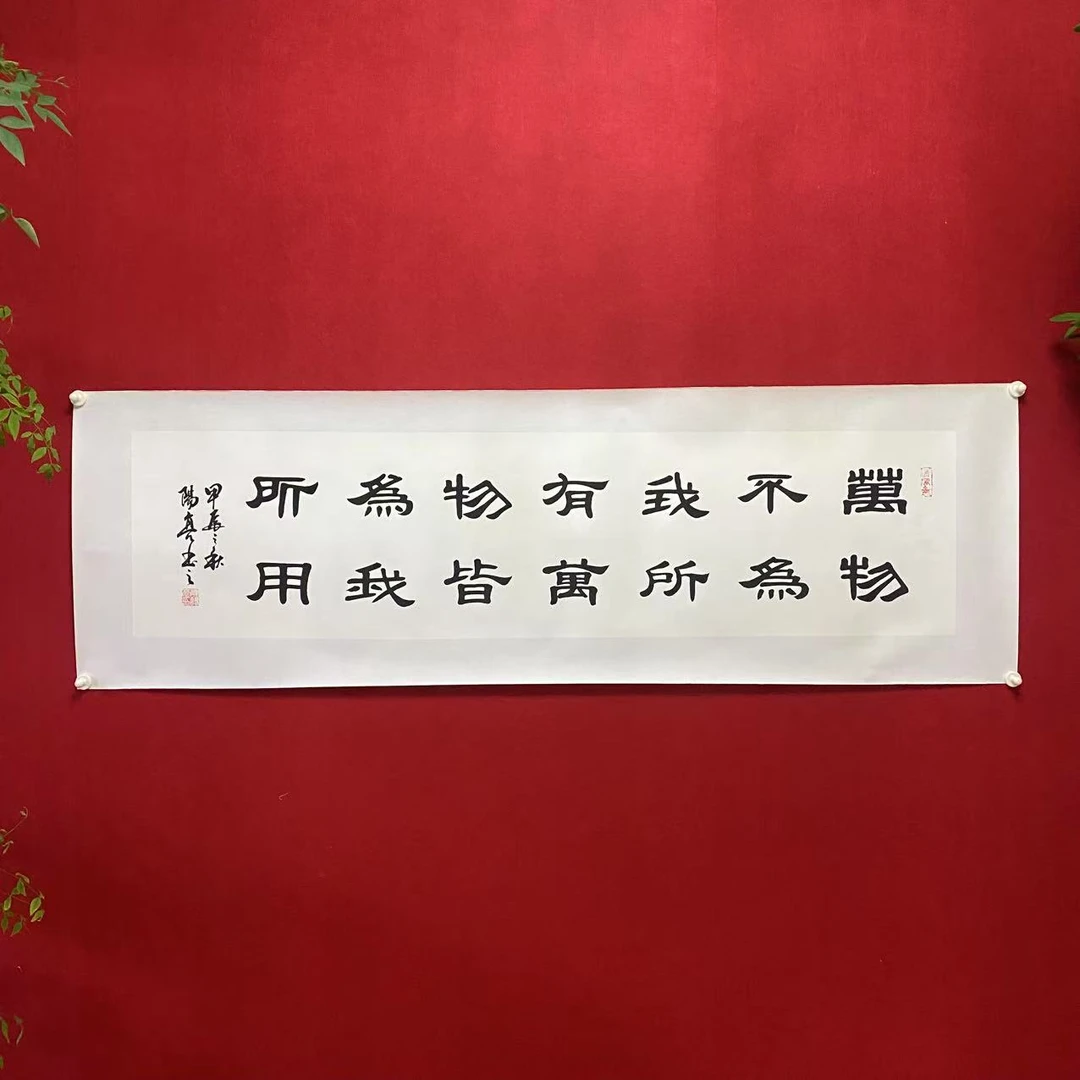 萬物
不為
我所
有萬
物皆
為我
所用
甲辰之秋
陽真书之